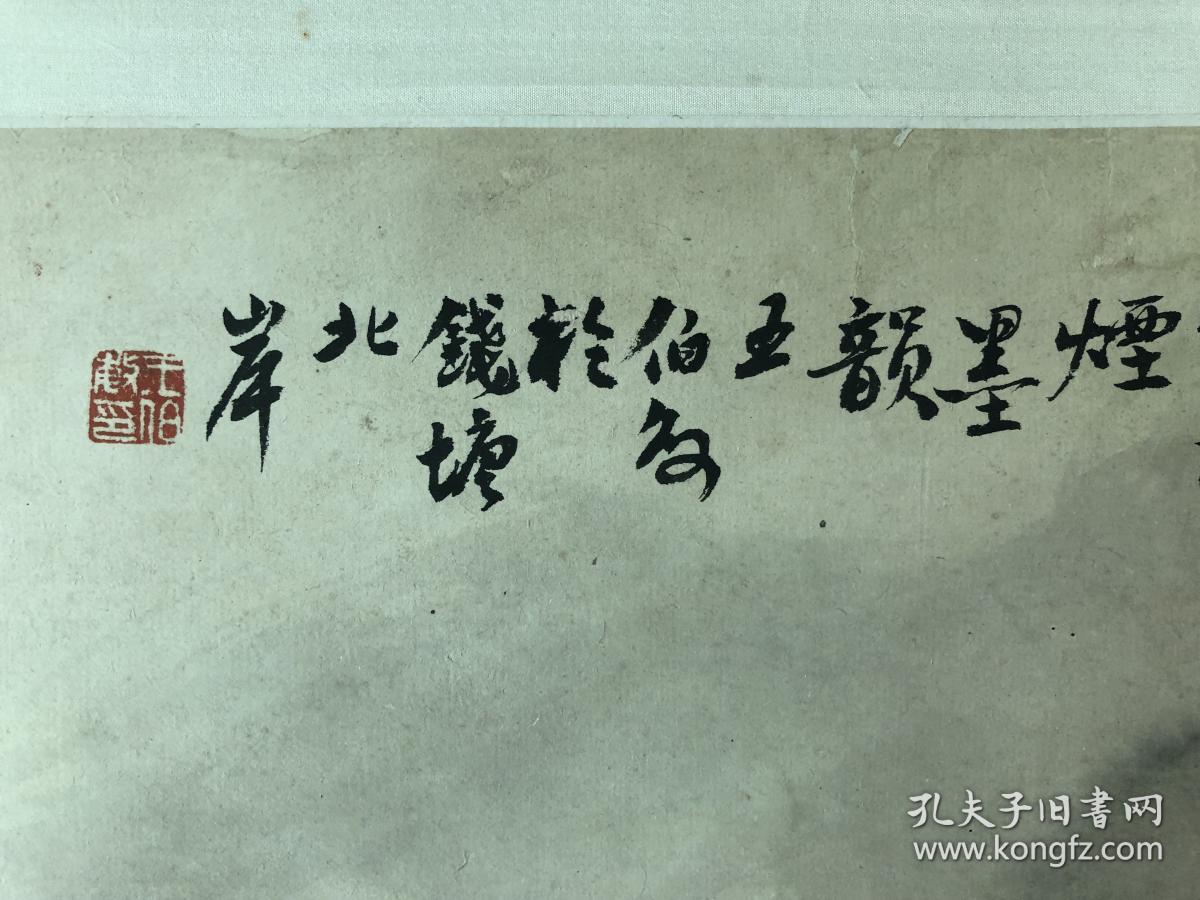 煙
墨
韻
王
伯敏
於
錢塘
北
岸
王伯
敏印
孔夫子旧书网
www.kongfz.com